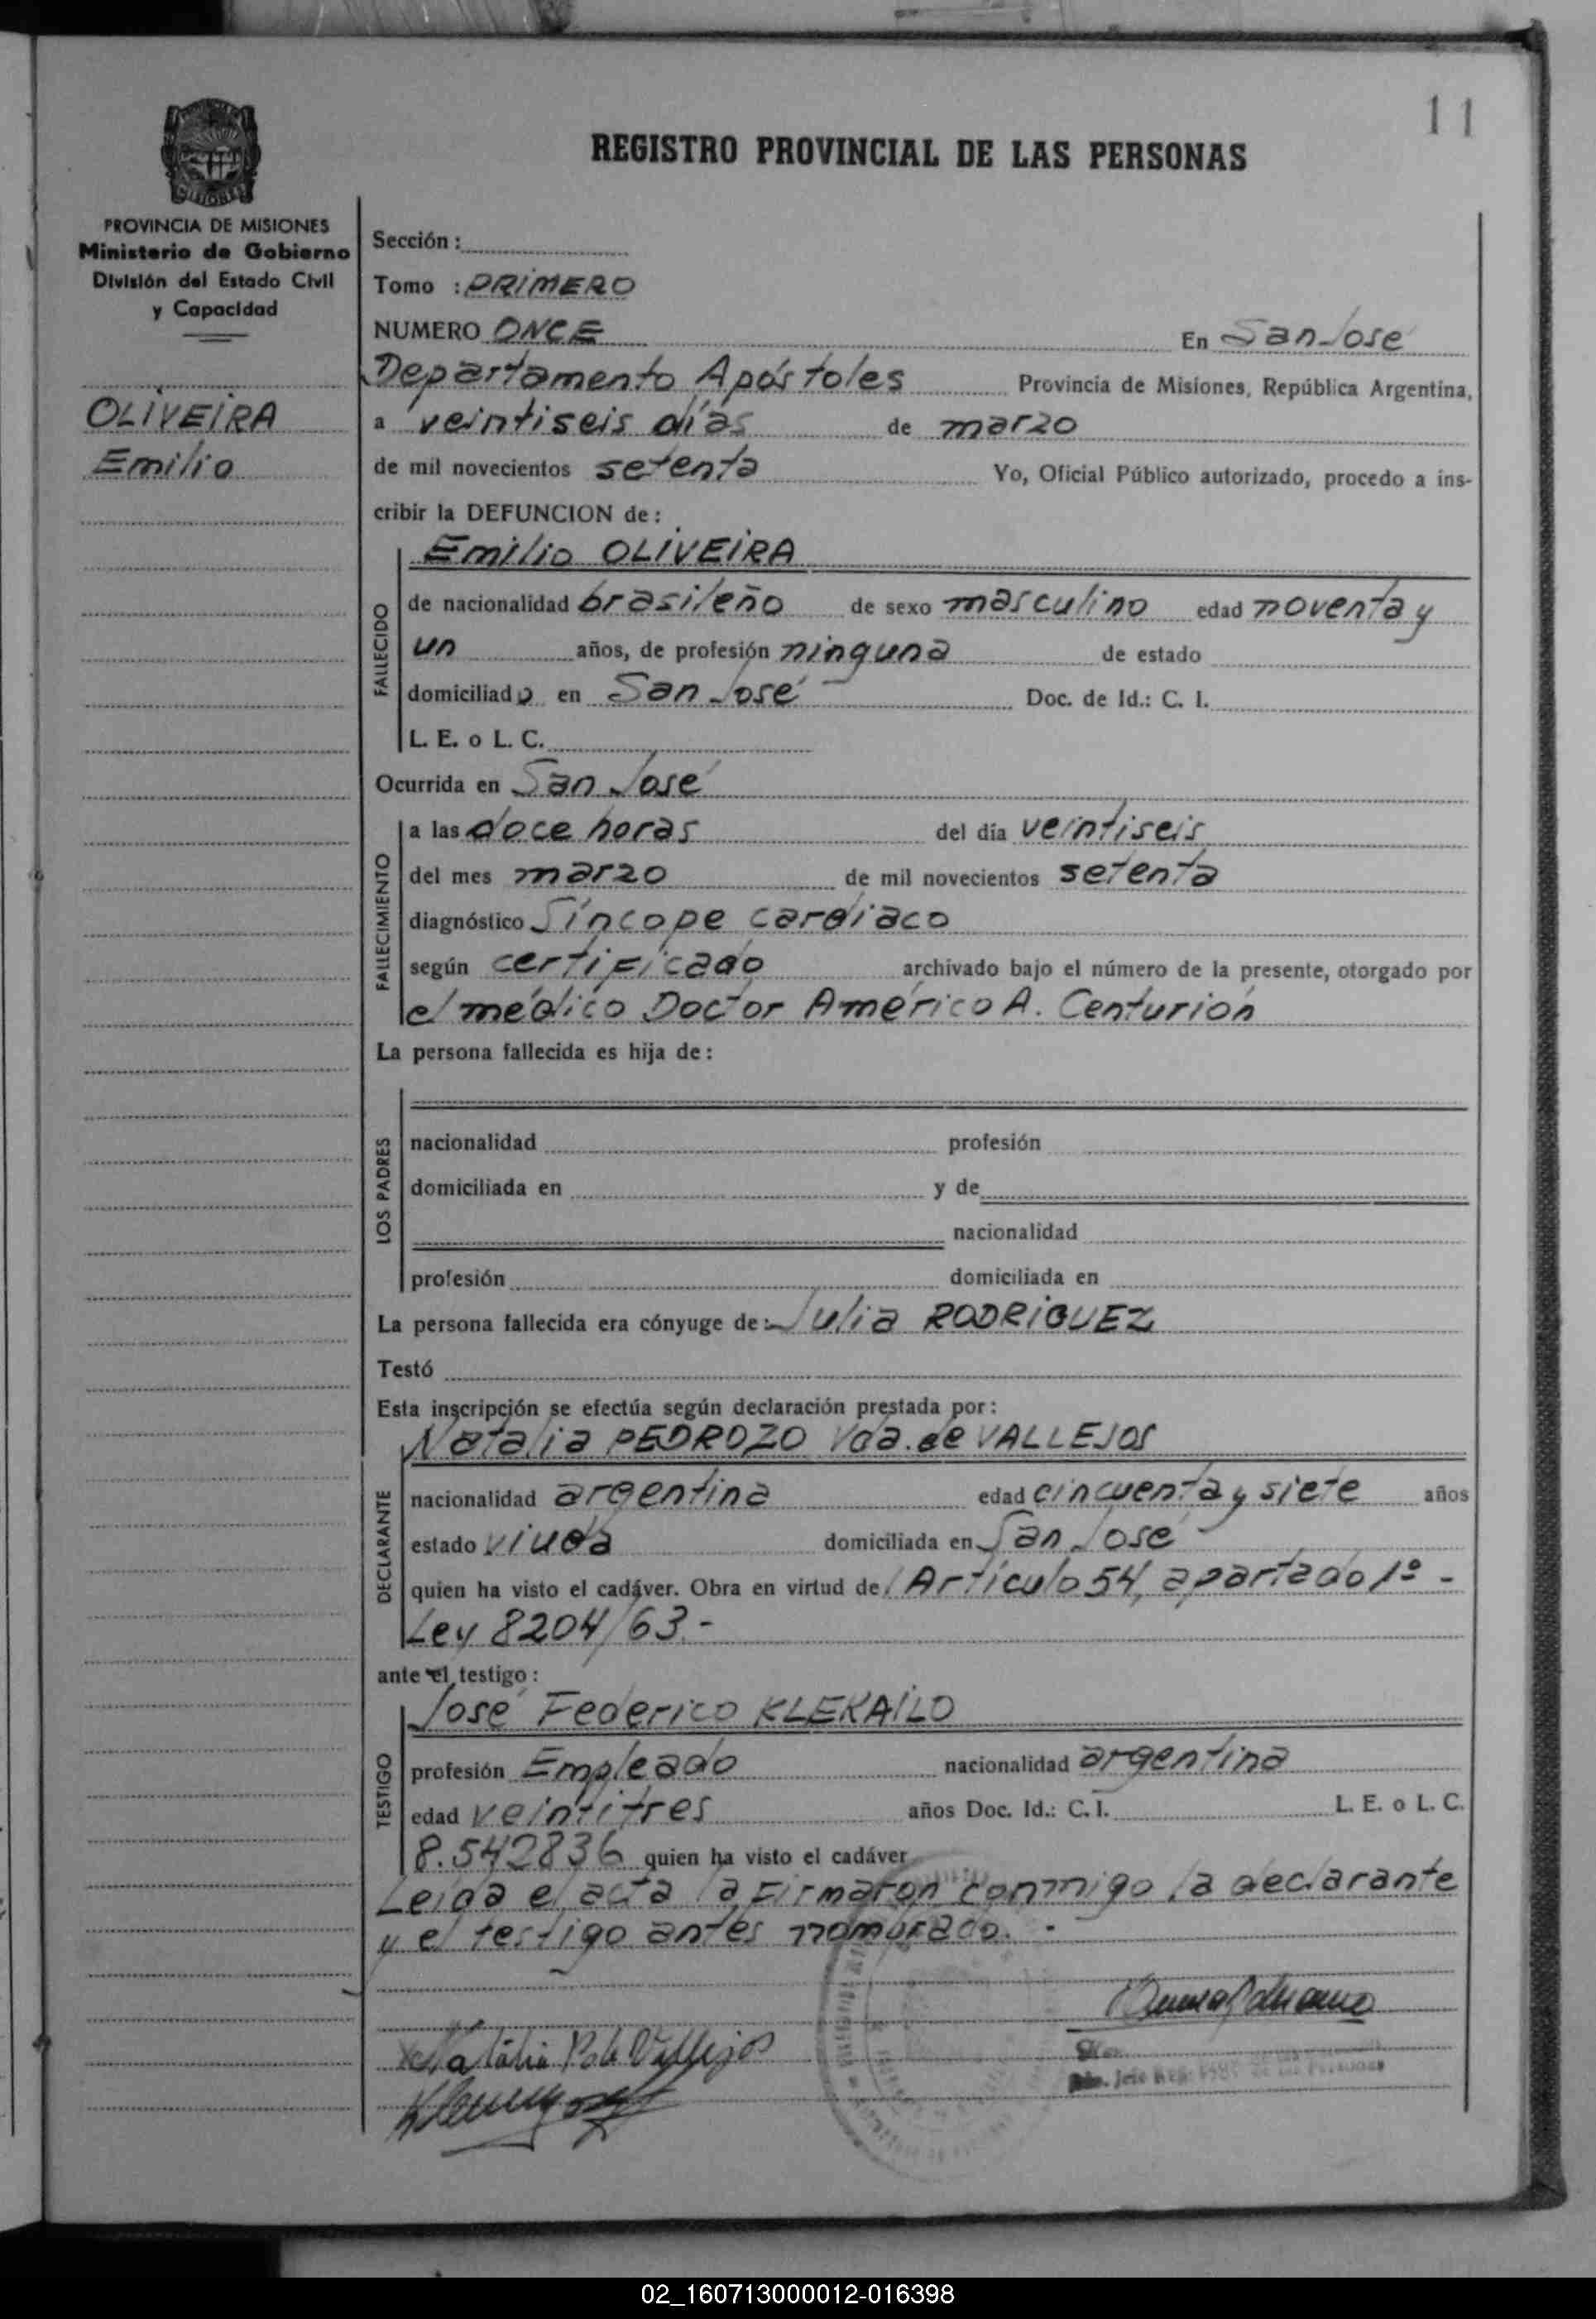 11
REGISTRO PROVINCIAL DE LAS PERSONAS
PROVINCIA DE MISIONES
Ministerio de Gobierno
División del Estado Civil
y Capacidad
OLIVEIRA
Emilio
Sección :
Tomo : PRIMERO
NUMERO ONCE En San José
Departamento Apóstoles Provincia de Misiones, República Argentina,
a veintiseis días de marzo
de mil novecientos setenta Yo, Oficial Público autorizado, procedo a ins-
cribir la DEFUNCION de :
Emilio OLIVEIRA
FALLECIDO
de nacionalidad brasileño de sexo masculino edad noventa y
un años, de profesión ninguna de estado
domiciliado en San José Doc. de Id.: C. I.
L. E. o L. C.
Ocurrida en San José
FALLECIMIENTO
a las doce horas del día veintiseis
del mes marzo de mil novecientos setenta
diagnóstico Síncope cardíaco
según certificado archivado bajo el número de la presente, otorgado por
el médico Doctor Américo A. Centurión
La persona fallecida es hija de :
LOS PADRES
nacionalidad profesión
domiciliada en y de
nacionalidad
profesión domiciliada en
La persona fallecida era cónyuge de : Julia RODRIGUEZ
Testó
Esta inscripción se efectúa según declaración prestada por :
Natalia PEDROZO Vda. de VALLEJOS
DECLARANTE
nacionalidad argentina edad cincuenta y siete años
estado viuda domiciliada en San José
quien ha visto el cadáver. Obra en virtud de Artículo 54, apartado 1º -
Ley 8204/63.-
ante el testigo :
José Federico KLEKAILO
TESTIGO
profesión Empleado nacionalidad argentina
edad veintitres años Doc. Id.: C. I. L. E. o L. C.
8.542836 quien ha visto el cadáver
Leída el acta la firmaron conmigo la declarante
y el testigo antes nombrado. -
Natalia P. de Vallejos
02_160713000012-016398